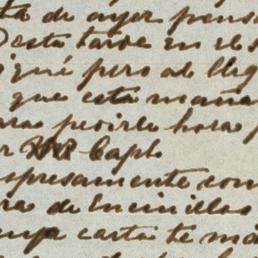 ta de ayer pens
Desta tarde en el s
qué pero al lleg
que esta maña
para pedirle hora p
r Capt.
presamente com
ra de Encinillas
enya carta te ma